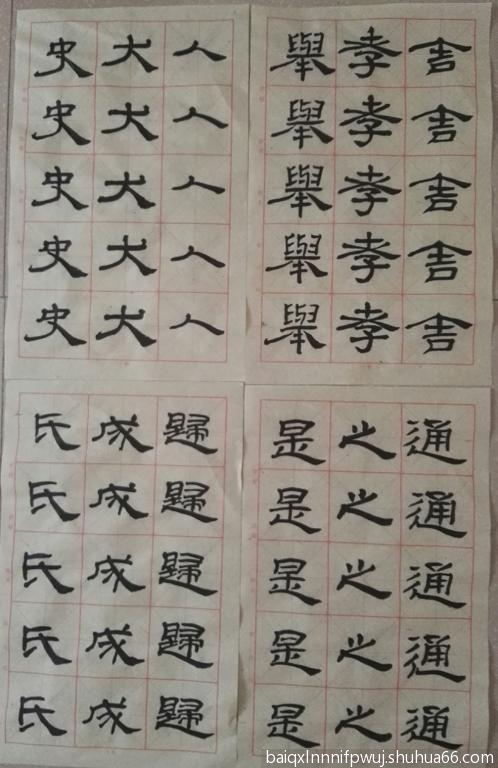 舍舍舍舍舍
孝孝孝孝孝
舉舉舉舉舉
人人人人人
大大大大大
史史史史史
通通通通通
之之之之之
是是是是是
歸歸歸歸歸
成成成成成
氏氏氏氏氏
baiqxlnnnifpwuj.shuhua66.com